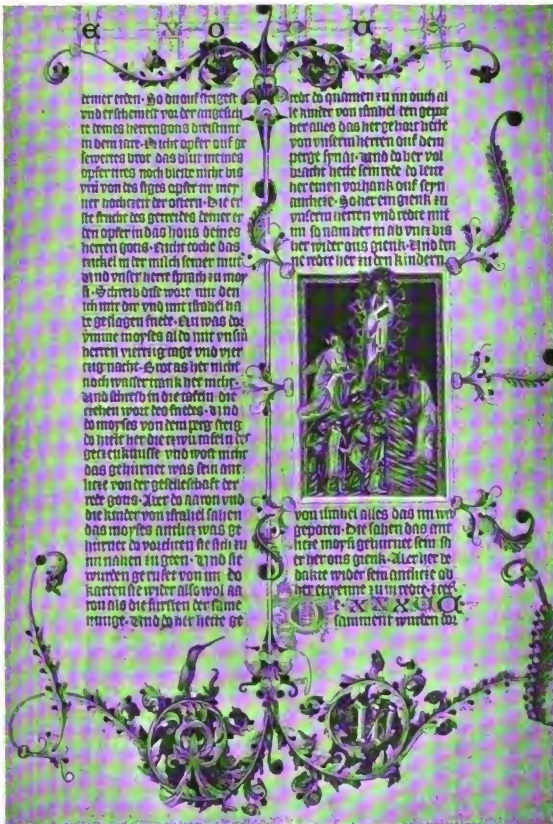 E X O D U S
deiner erden. So du auf steigest
vnd erscheinest vor der angesich
te deines herren gotis dreistunt
in dem iare. Nicht opfer auf ge
sewertes brot das blut meines
opfertires noch bleibe nicht bis
vru von des siges opfer in mey
ner hochzeit der ostern. Die er
ste frucht des getreides deiner er
den opfer in das hous deines
herren gotis. Nicht coche das
kickel in der milch seiner muter
Und vnser herre sprach zu moy
si. Schreib dise wort mit den
ich mit dir vnd mit israhel ha
be geslagen frede. Nu was dor
vmme moyses aldo mit vnsm
herren vierczig tage vnd vier
czig nacht. Brot as her nicht
noch wasser trank her nicht.
Und schreib in die tafeln die
czehen wort des fredes. Und
do moyses von dem perg steig
do hielt her die czwu tafeln der
geczeuknisse vnd wost nicht
das gehurnet was sein ant
licze von der geselleschaft der
rede gotis. Aber do aaron vnd
die kinder von israhel sahen
das moyses antlicz was ge
hurnet do vorchten sie sich zu
im nahen zu geen. Und sie
wurden geruffet von im do
karten sie wider also wol aa
ron als die fursten der same
nunge. Und do her hette ge
redt do quamen zu im ouch al
le kinder von israhel den gepot
her alles das her gehort hette
von vnserm herren ouf dem
perge synai. Und do her vol
bracht hette sein rede do leite
her einen vorhank ouf seyn
antlicze. So her ein gienk zu
vnserm herren vnd redte mit
im so nam her in ab vncz bis
her wider ous gienk. Und den
ne redte her zu den kindern
von israhel alles das im wr
geporen. Die sahen das ant
licze moysi gehurnet sein so
er her ous gienk. Aber her be
dakte wider sein antlicze ob
her etzwenne zu in redte. Das
XXXV
samment wurden dor